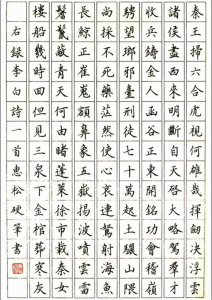 秦王掃六合虎視何雄哉揮劍決浮雲
諸侯盡西來明斷自天啟大略駕羣才
收兵鑄金人函谷正東開銘功會稽嶺
騁望瑯邪臺刑徒七十萬起土驪山隈
尚采不死藥茫然使心哀連弩射海魚
長鯨正崔嵬額鼻象五嶽揚波噴雲雷
鬐鬣蔽青天何由睹蓬萊徐市載秦女
樓船幾時回但見三泉下金棺葬寒灰
右録李白詩一首惠松硬筆書